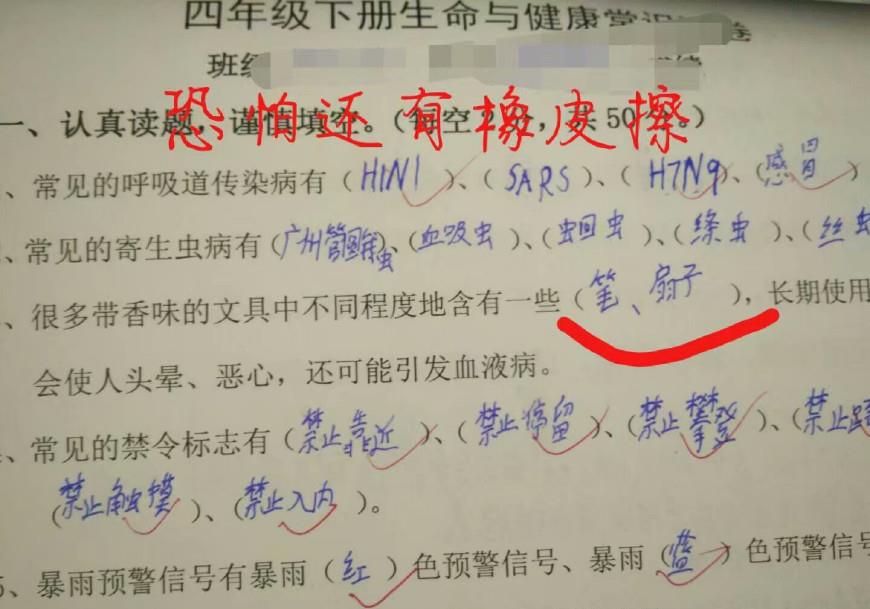 四年级下册生命与健康常识 卷
班级
恐怕还有橡皮擦
一、认真读题，谨慎填空。（每空2分，共50分。）
、常见的呼吸道传染病有（H1N1）、（SARS）、（H7N9）、（感冒）
、常见的寄生虫病有（广州管圆线虫）、（血吸虫）、（蛔虫）、（绦虫）、（丝虫
、很多带香味的文具中不同程度地含有一些（笔、扇子），长期使用
会使人头晕、恶心，还可能引发血液病。
、常见的禁令标志有（禁止靠近）、（禁止停留）、（禁止攀登）、（禁止
（禁止触摸）、（禁止入内）。
5、暴雨预警信号有暴雨（红）色预警信号、暴雨（蓝）色预警信号